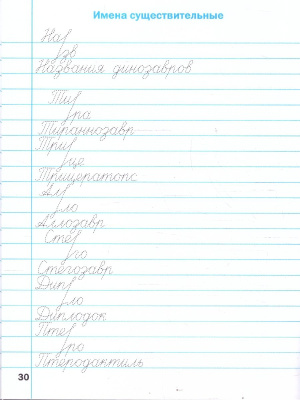 Имена существительные
На
зв
Названия динозавров
Ти
ра
Тираннозавр
Три
це
Трицератопс
Ал
ло
Аллозавр
Сте
го
Стегозавр
Дип
ло
Диплодок
Пте
ро
Птеродактиль
30